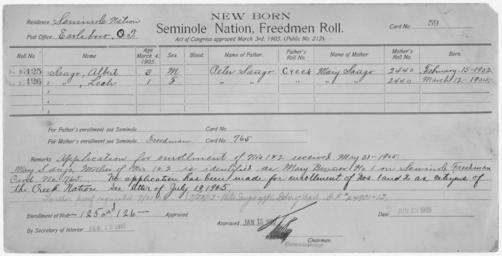 NEW BORN
Residence Seminole Nation
Seminole Nation, Freedmen Roll.
Card No. 59
Post Office Earlsboro, O.T.
Act of Congress approved March 3rd, 1905, (Public No. 212).
Roll No. Name Age March 4, 1905. Sex. Blood. Name of Father. Father's Roll No. Name of Mother. Mother's Roll No. Born.
125 Saago, Albert 3 M Peter Saago Creek Mary Saago 2440 February-15-1902
126 " , Leah 1 F " " " " 2440 March 12-
For Father's enrollment see Seminole Card No.
For Mother's enrollment see Seminole Freedman Card No. 765
Remarks Application for enrollment of Nos 1&2 received May 29-1905.
Mary Saago, Mother of Nos 1&2 is identified as Mary No 1 on Seminole Freedmen
Card No. 765. No application has been made for enrollment of Nos 1 and 2 as citizens of
the Creek Nation. See letter of July 19, 1905.
Enrollment of Nos 125 and 126 Approved
Approved JAN 13
By Secretary of Interior
Chairman